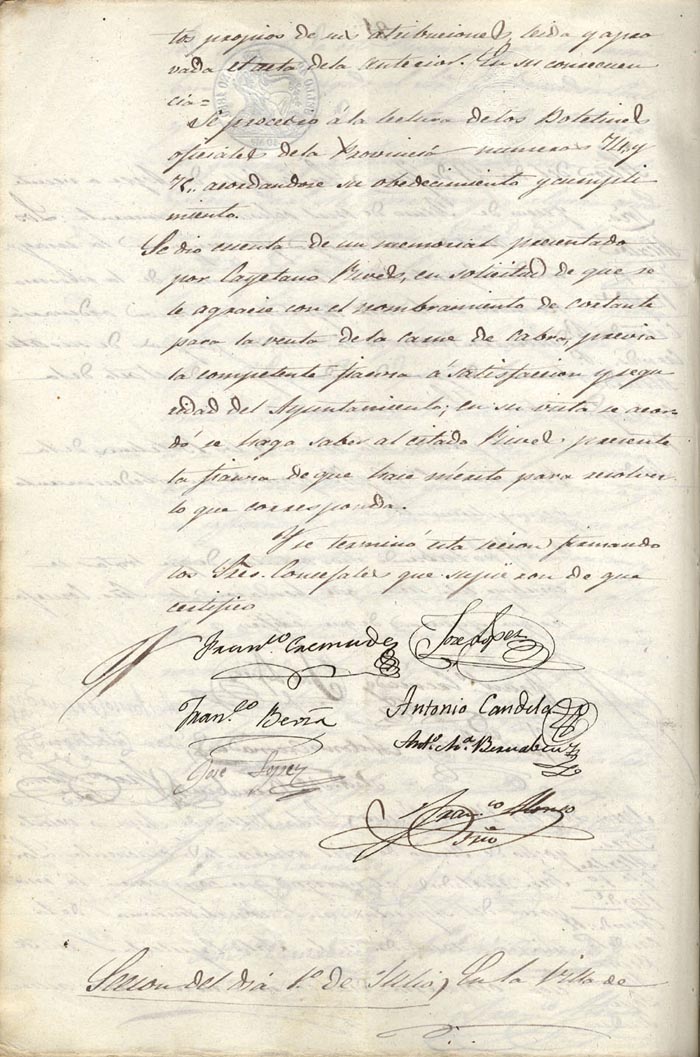 tos propios de sus atribuciones, leida y apro
vada el acta dela anterior. En su consecuen
cia=
Se procedio á la lectura delos Boletines
oficiales dela Provincia numeros 74, y
7 acordandose su obedecimiento y cumpli
miento.
Se dio cuenta de un memorial presentado
por Cayetano Rives, en solicitud de que se
le agracie con el nombramiento de cortante
para la venta dela carne de Cabra, previa
la competente fianza á satisfaccion y segu
ridad del Ayuntamiento; en su vista se acor
dó se haga saber al citado Rives presente
la fianza de que hace mérito para resolver
lo que corresponda.
Y se terminó esta secion firmando
los Sres. Concejales que supieron de que
certifico
Fran.co Cremades José Lopez
Fran.co Berna Antonio Candela
José Lopez Ant.o M.a Bernabeu
Fran.co Alonso
Srio
Secion del dia 1.o de Julio, En la Villa de